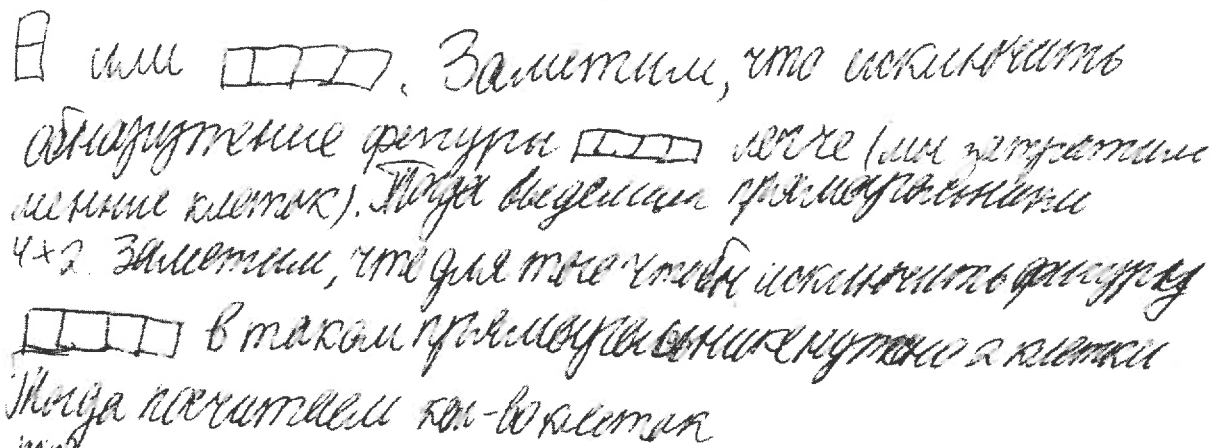 или . Заметим, что исключить
обнаружение фигуры легче (мы затратим
меньше клеток). Тогда выделим прямоугольники
4×2. Заметим, что для того чтобы исключить фигурку
в таком прямоугольнике нужно 2 клетки
Тогда посчитаем кол-во клеток